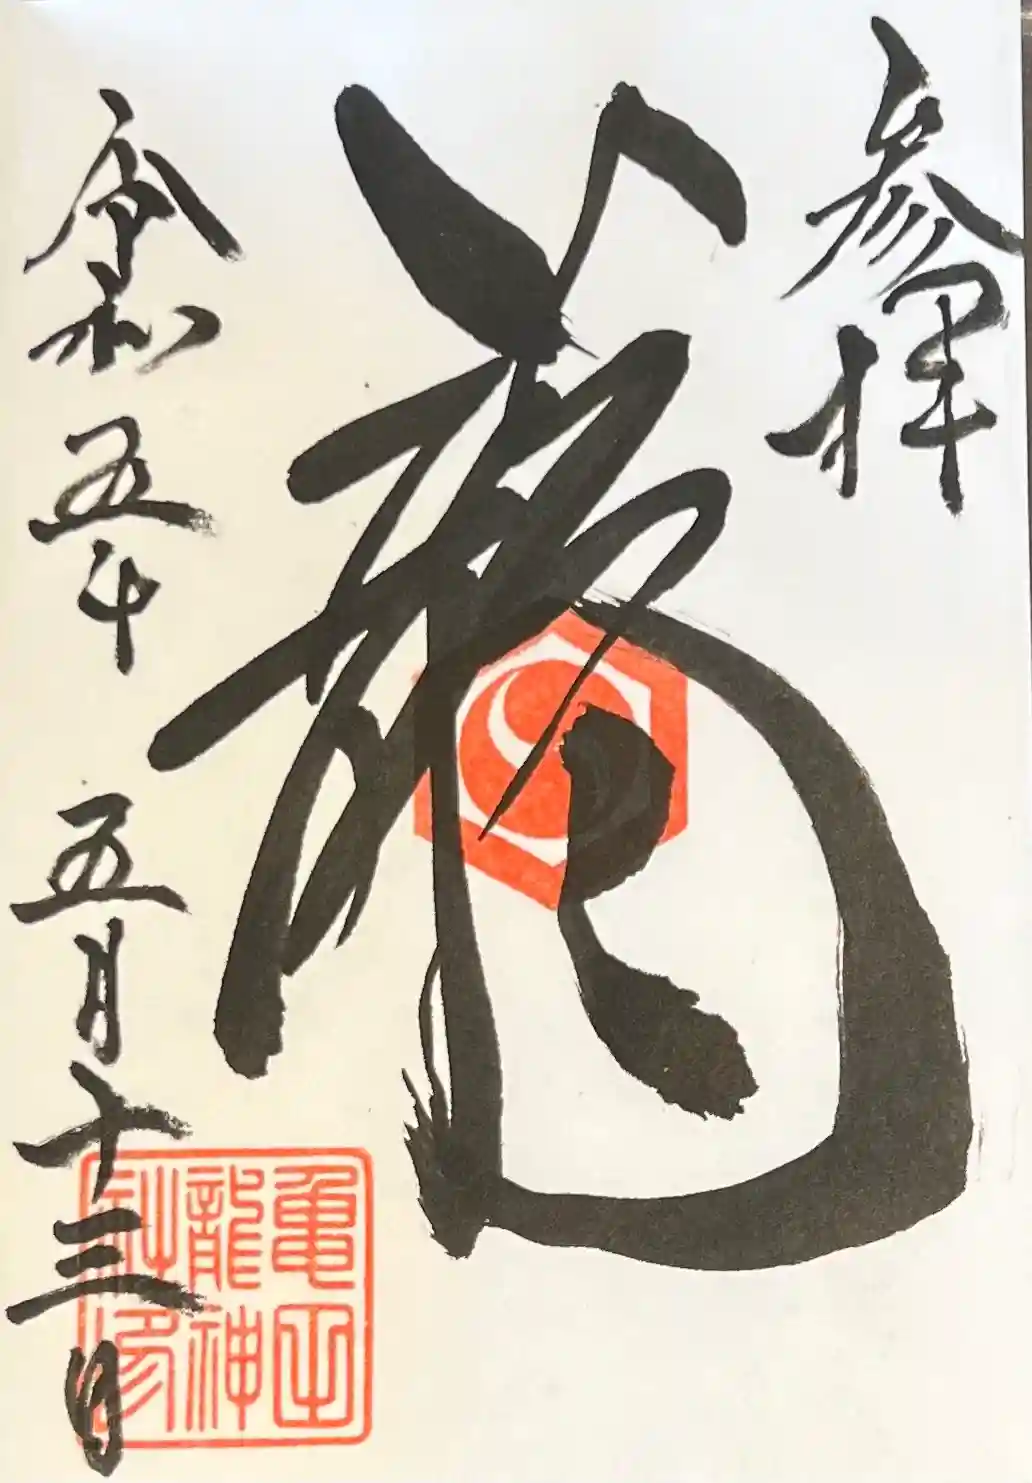 参拝
龍
令和五年 五月十三日
亀
龍神
社